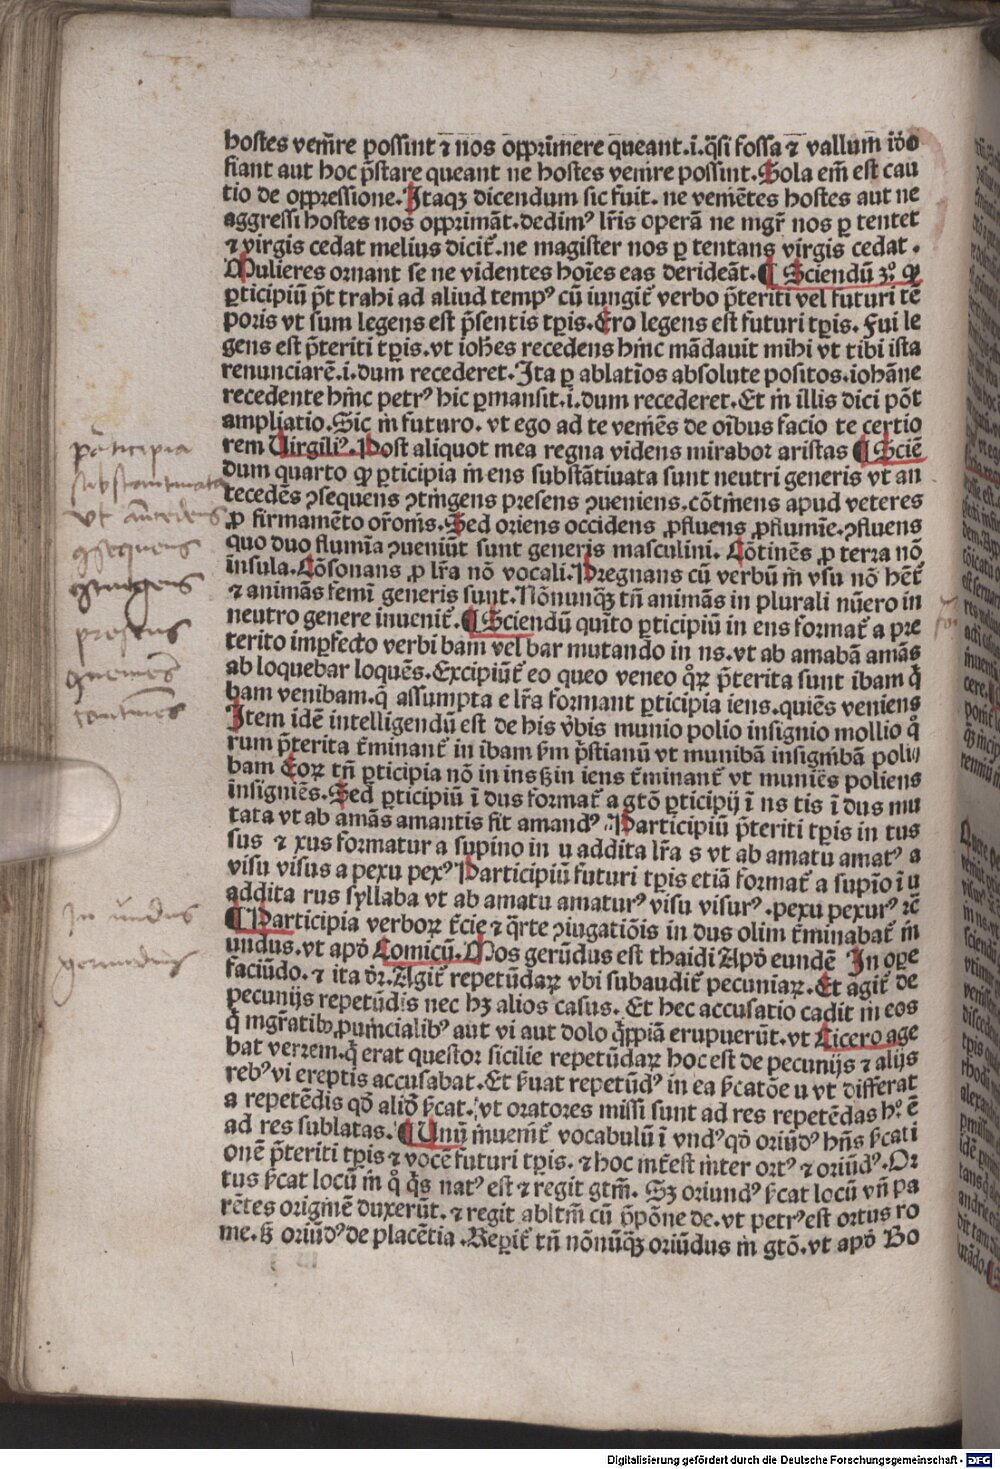 hostes vem̄re possint ⁊ nos oppri̅mere queant.i.q̄si fossa ⁊ vallum i̅do
fiant aut hoc p̄stare queant ne hostes veni̅re possint.Sola em̄ est cau
tio de oppressione.Itaqꝫ dicendum sic fuit. ne vemētes hostes aut ne
aggressi hostes nos opprimāt.dedimꝰ lr̄is operā ne mgr̄ nos ꝑ tentet
⁊ virgis cedat melius dicit̄.ne magister nos ꝑ tentans virgis cedat.
Mulieres ornant se ne videntes hoīes eas derideāt.¶ Sciendū 3ꝰ ꝙ
ꝑticipiū p̄t trahi ad aliud tempꝰ cū iungit̄ verbo p̄teriti vel futuri tē
poris vt sum legens est p̄sentis tꝑis.Ero legens est futuri tꝑis. Fui le
gens est p̄teriti tꝑis.vt ioh̄es recedens hīnc mādauit mihi vt tibi ista
renunciarē.i.dum recederet.Ita ꝑ ablatiōs absolute positos.iohāne
recedente hīnc petrꝰ hic ꝑmansit.i.dum recederet.Et in̄ illis dici pōt
ampliatio.Sic in̄ futuro. vt ego ad te vemēs de oībus facio te certio
rem Uirgiliꝰ.Post aliquot mea regna videns mirabor aristas ¶ Sciē
dum quarto ꝙ ꝑticipia in̄ ens substātiuata sunt neutri generis vt an
tecedēs ꝯsequens ꝯtīngens presens ꝯueniens.cōtīnens apud veteres
ꝓ firmamēto or̄oīs.Sed oriens occidens ꝓfluens ꝓflumīe.ꝯfluens
quo duo flumīa ꝯueniūt sunt generis masculini. Cōtinēs ꝓ terra nō
īnsula.Cōsonans ꝓ lr̄a nō vocali.Pregnans cū verbū in̄ vsu nō hēt̄
⁊ animās femīī generis sunt.Nōnunqꝫ tn̄ animās in plurali nūero in
neutro genere inuenit̄.¶ Sciendū quīto ꝑticipiū in ens format̄ a pre
terito imꝑfecto verbi bam vel bar mutando in ns.vt ab amabā amās
ab loquebar loquēs.Excipiūt̄ eo queo veneo qꝛ p̄terita sunt ibam q̄
bam venibam.q̄ assumpta e lr̄a formant ꝑticipia iens.quiēs veniens
Item idē intelligendū est de his v̄bis munio polio insignio mollio qͦ
rum p̄terita t̄minant̄ in ibam ẜm p̄stianū vt munibā insigībā poli
bam Eoꝝ tn̄ ꝑticipia nō in ins sꝫ in iens t̄minant̄ vt muniēs poliens
īnsigniēs.Sed ꝑticipiū ī dus format̄ a gtō ꝑticipij ī ns tis ī dus mu
tata vt ab amās amantis fit amandꝰ.Participiū p̄teriti tꝑis in tus
sus ⁊ xus formatur a supino in u addita lr̄a s vt ab amatu amatꝰ a
visu visus a pexu pexꝰ Participiū futuri tꝑis etiā format̄ a supīo ī u
addita rus syllaba vt ab amatu amaturꝰ visu visurꝰ.pexu pexurꝰ ⁊c̄
¶ Participia verboꝝ t̄cie ⁊ q̄rte ꝯiugatiōis in dus olim t̄minabāt̄ in̄
undus.vt apō Comicū.Mos gerūdus est thaidi Apō eundē In oꝑe
faciūdo.⁊ ita dr̄.Agit̄ repetūdaꝝ vbi subaudit̄ pecuniaꝝ.Et agit̄ de
pecunijs repetūdis nec hꝫ alios casus. Et hec accusatio cadit in̄ eos
q̄ mgr̄atibꝰ,ꝓuīncialibꝰ aut vi aut dolo q̄ꝑpiā erupuerūt.vt Cicero age
bat verrem.q̄ erat questor sicilie repetūdaꝝ hoc est de pecunijs ⁊ alijs
rebꝰ vi ereptis accusabat.Et ẜuat repetūdꝰ in ea ẜcatōe u vt differat
a repetēdis qd̄ aliō ẜcat.vt oratores missi sunt ad res repetēdas hꝰ.ē
ad res sublatas.¶ Unū īnuenit̄ vocabulū ī vndꝰ qd̄ oriūdꝰ hn̄s ẜcati
onē p̄teriti tꝑis ⁊ vocē futuri tꝑis.⁊ hoc int̄est in̄ter ortꝰ ⁊ oriūdꝰ.Or
tus ẜcat locū in̄ qͦ q̄s natꝰ est ⁊ regit gtīn̄. Sꝫ oriundꝰ ẜcat locū vn̄ pa
rētes originē duxerūt.⁊ regit abltm̄ cū p̄pōne de.vt petrꝰ est ortus ro
me.sꝫ oriūdꝰ de placētia.Reꝑit̄ tn̄ nōnūqꝫ oriūdus in̄ gtō.vt apō Bo
participia
substantiuata
vt antecedens
ꝯsequens
ꝯtingens
presens
ꝯueniens
continens
In undus
gerundus
Digitalisierung gefördert durch die Deutsche Forschungsgemeinschaft - DFG